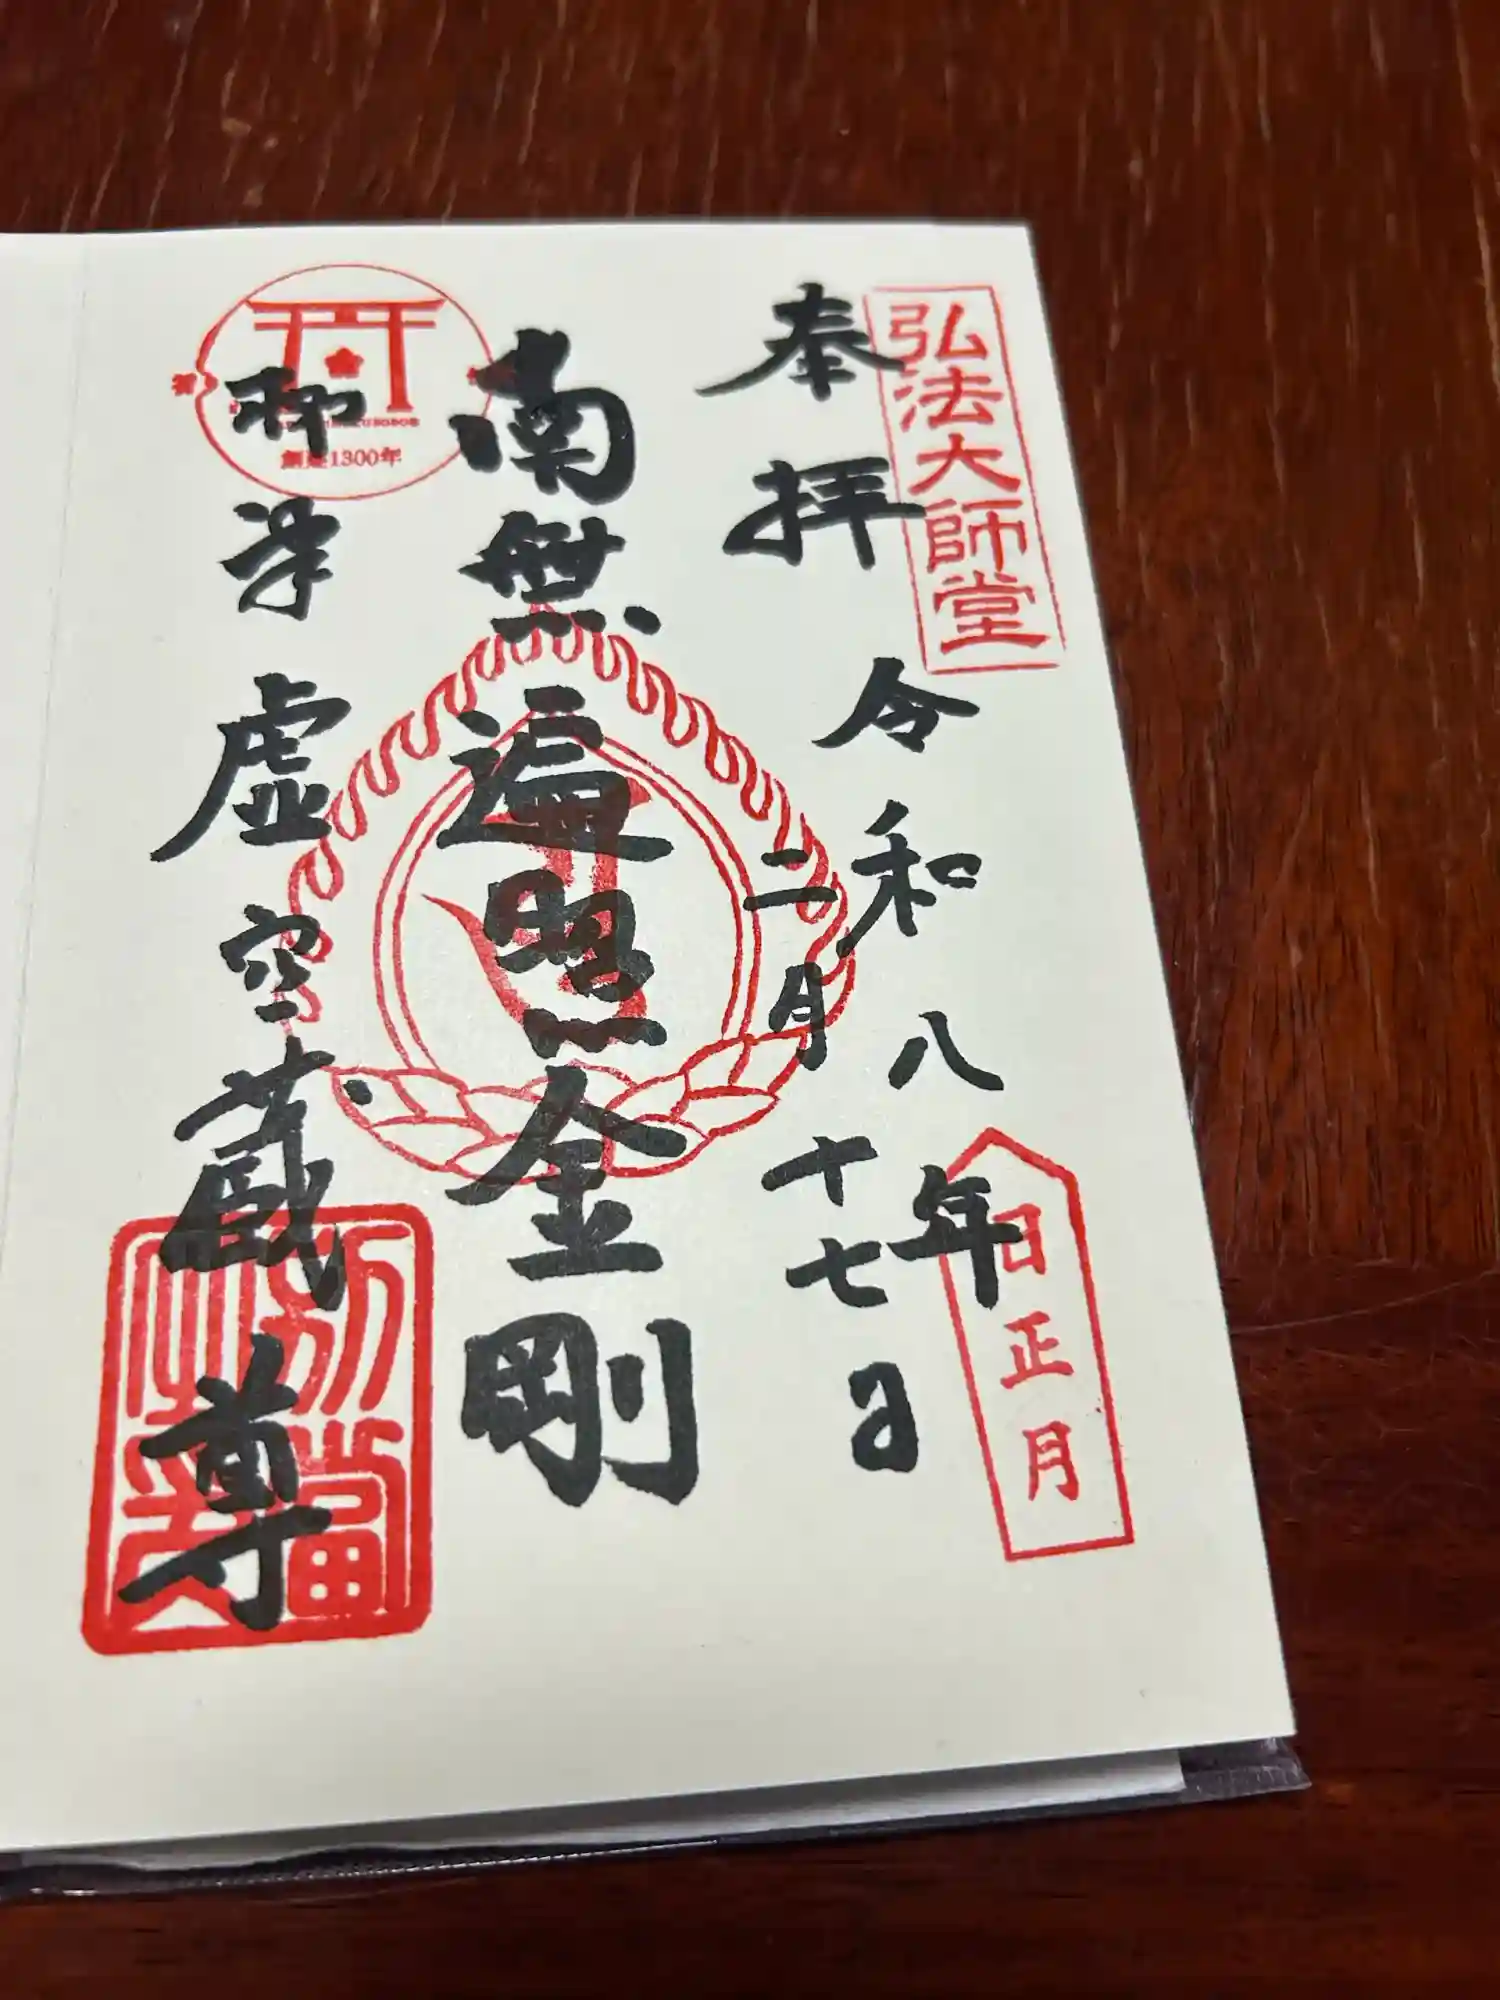 弘法大師堂
奉拝
令和八年
二月十七日
旧正月
南無遍照金剛
虚空蔵尊
創建1300年